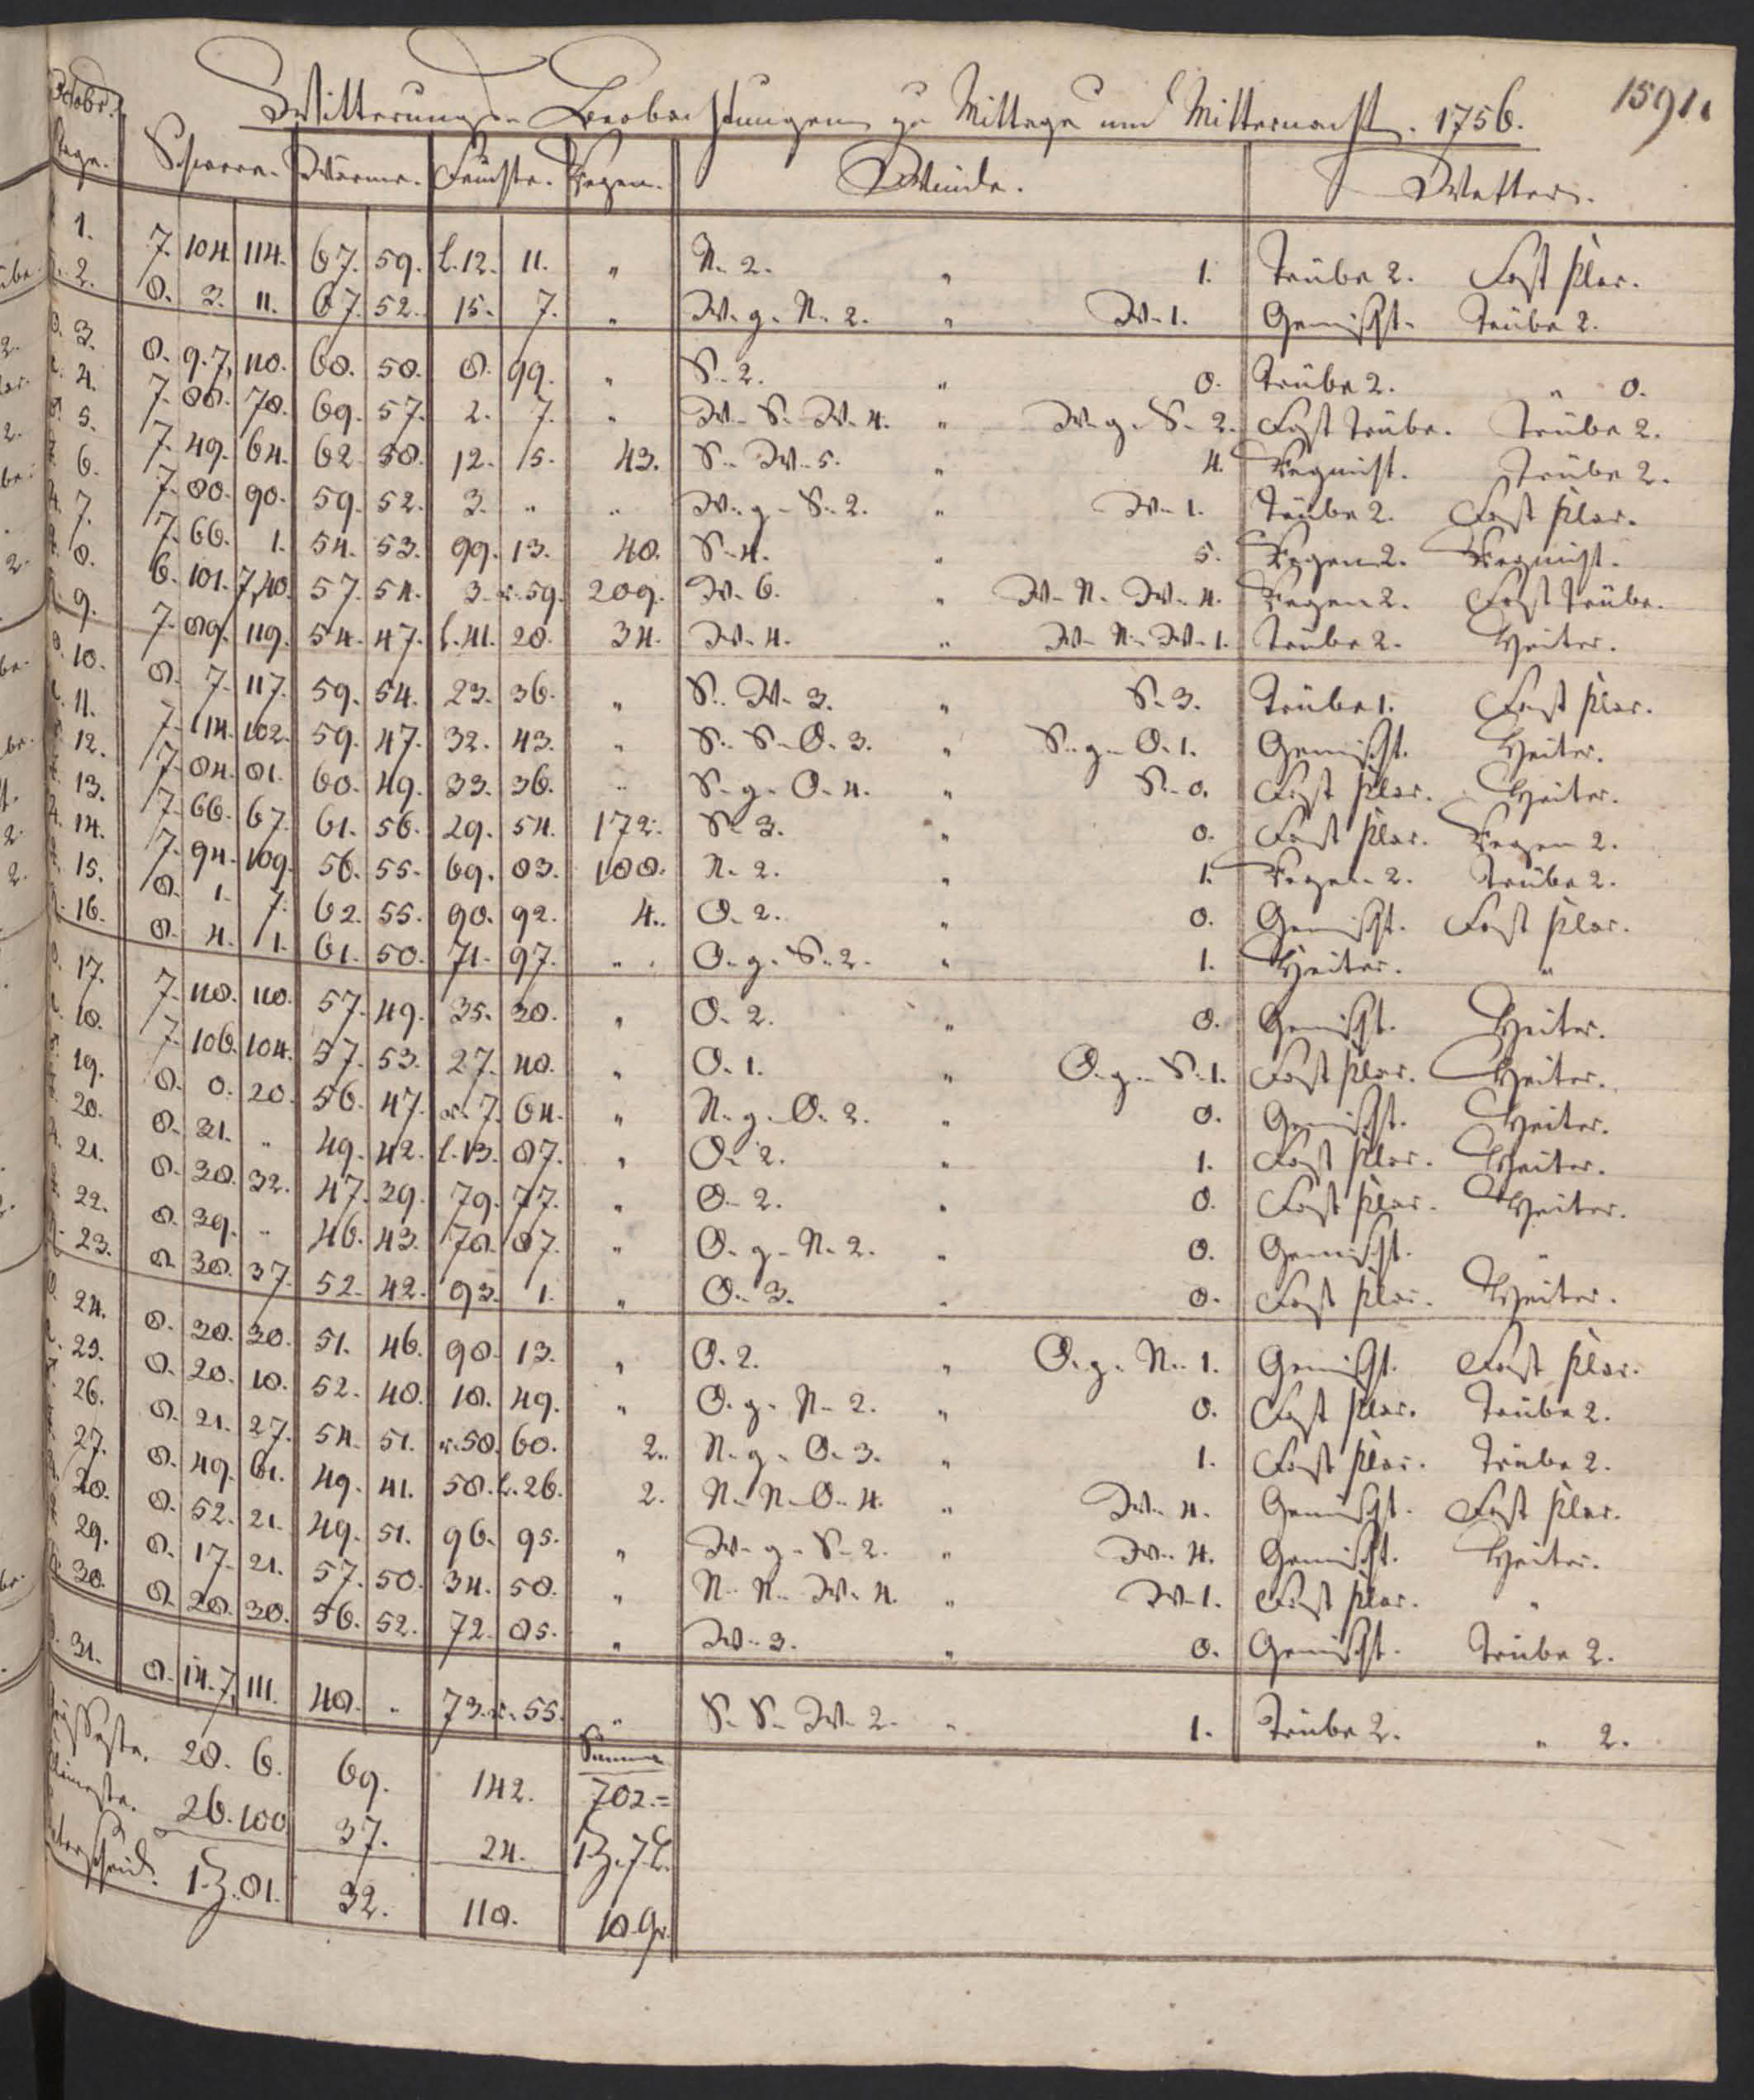 Octobr. Witterungs-Beobachtungen zu Mittage und Mitternacht. 1756. 1591.
Tage. Schwere. Wärme. Feuchte. Regen. Winde. Wetter.
1. 7. 104. 114. 67. 59. l. 12. 11. " N. 2. " 1. Trübe 2. Fast klar.
2. 8. 3. 11. 67. 52. 15. 7. " W. g. N. 2. " W. 1. Gemischt. Trübe 2.
3. 8. 9. 7, 118. 68. 58. 8. 99. " S. 2. " 0. Trübe 2. " 0.
4. 7. 88. 78. 69. 57. 2. 7. " W. S. W. 4. " W. g. S. 2. Fast trübe. Trübe 2.
5. 7. 49. 64. 62. 58. 12. 15. 43. S. W. 5. " 4. Regnicht. Trübe 2.
6. 7. 80. 90. 59. 52. 3. " " W. g. S. 2. " W. 1. Trübe 2. Fast klar.
7. 7. 66. 1. 54. 53. 99. 13. 48. S. 4. " 5. Regen 2. Regnicht.
8. 6. 101. 7, 40. 57. 54. 3. r. 59. 209. W. 6. " W. N. W. 4. Regen 2. Fast trübe.
9. 7. 89. 119. 54. 47. l. 41. 28. 34. W. 4. " W. N. W. 1. Trübe 2. Heiter.
10. 8. 7. 117. 59. 54. 23. 36. " S. W. 3. " S. 3. Trübe 1. Fast klar.
11. 7. 114. 102. 59. 47. 32. 43. " S. S. O. 3. " S. g. O. 1. Gemischt. Heiter.
12. 7. 84. 81. 60. 49. 33. 36. " S. g. O. 4. " S. 0. Fast klar. Heiter.
13. 7. 66. 67. 61. 56. 29. 54. 172. S. 3. " 0. Fast klar. Regen 2.
14. 7. 94. 109. 56. 55. 69. 83. 188. N. 2. " 1. Regen 2. Trübe 2.
15. 8. 1. 7. 62. 55. 90. 92. 4. O. 2. " 0. Gemischt. Fast klar.
16. 8. 4. 1. 61. 50. 71. 97. " O. g. S. 2. " 1. Heiter. "
17. 7. 118. 110. 57. 49. 35. 38. " O. 2. " 0. Gemischt. Heiter.
18. 7. 106. 104. 57. 53. 27. 48. " O. 1. " O. g. S. 1. Fast klar. Heiter.
19. 8. 0. 20. 56. 47. r. 7. 64. " N. g. O. 2. " 0. Gemischt. Heiter.
20. 8. 31. " 49. 42. l. 13. 87. " O. 2. " 1. Fast klar. Heiter.
21. 8. 38. 32. 47. 39. 79. 77. " O. 2. " 0. Fast klar. Heiter.
22. 8. 39. " 46. 43. 78. 87. " O. g. N. 2. " 0. Gemischt. "
23. 8. 38. 37. 52. 42. 93. 1. " O. 3. " 0. Fast klar. Heiter.
24. 8. 38. 30. 51. 46. 98. 13. " O. 2. " O. g. N. 1. Gemischt. Fast klar.
25. 8. 20. 18. 52. 48. 18. 49. " O. g. N. 2. " 0. Fast klar. Trübe 2.
26. 8. 21. 27. 54. 51. r. 58. 60. 2. N. g. O. 3. " 1. Fast klar. Trübe 2.
27. 8. 49. 61. 49. 41. 58. l. 26. 2. N. N. O. 4. " W. 4. Gemischt. Fast klar.
28. 8. 52. 21. 49. 51. 96. 95. " W. g. S. 2. " W. 4. Gemischt. Heiter.
29. 8. 17. 21. 57. 50. 34. 58. " N. N. W. 4. " W. 1. Fast klar. "
30. 8. 28. 30. 56. 52. 72. 85. " W. 3. " 0. Gemischt. Trübe 2.
31. 8. 14. 7, 111. 48. " 73. r. 55. " S. S. W. 2. " 1. Trübe 2. " 2.
28. 6. 69. 142. Summa 702. =
26. 100. 37. 24. 1 Z. 7 L.
1 Z. 81. 32. 118. 10 Gr.